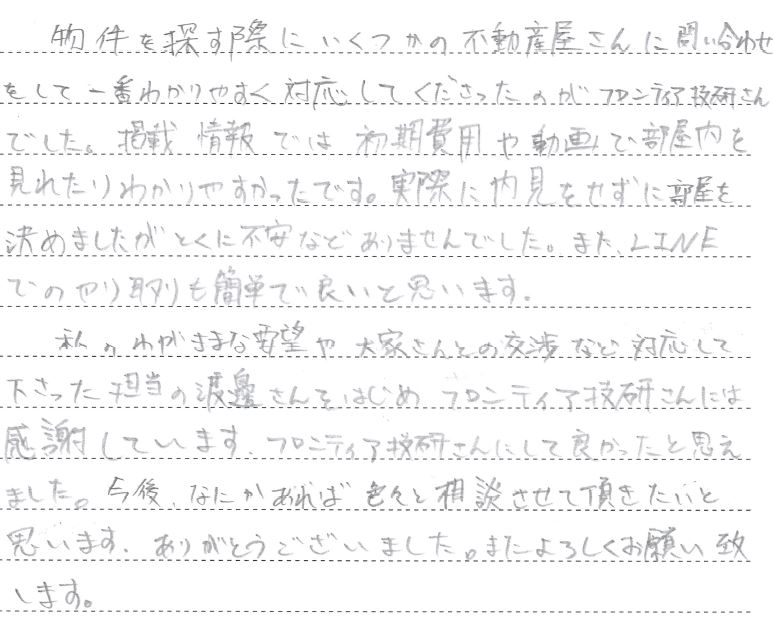 物件を探す際にいくつかの不動産屋さんに問い合わせ
をして一番わかりやすく対応してくださったのがフロンティア技研さん
でした。掲載情報では初期費用や動画で部屋内を
見れたりわかりやすかったです。実際に内見をせずに部屋を
決めましたがとくに不安などありませんでした。また、LINE
でのやり取りも簡単で良いと思います。
私のわがままな要望や大家さんとの交渉など対応して
下さった担当の渡邊さんをはじめ フロンティア技研さんには
感謝しています。フロンティア技研さんにして良かったと思え
ました。今後、なにかあれば色々と相談させて頂きたいと
思います。ありがとうございました。またよろしくお願い致
します。